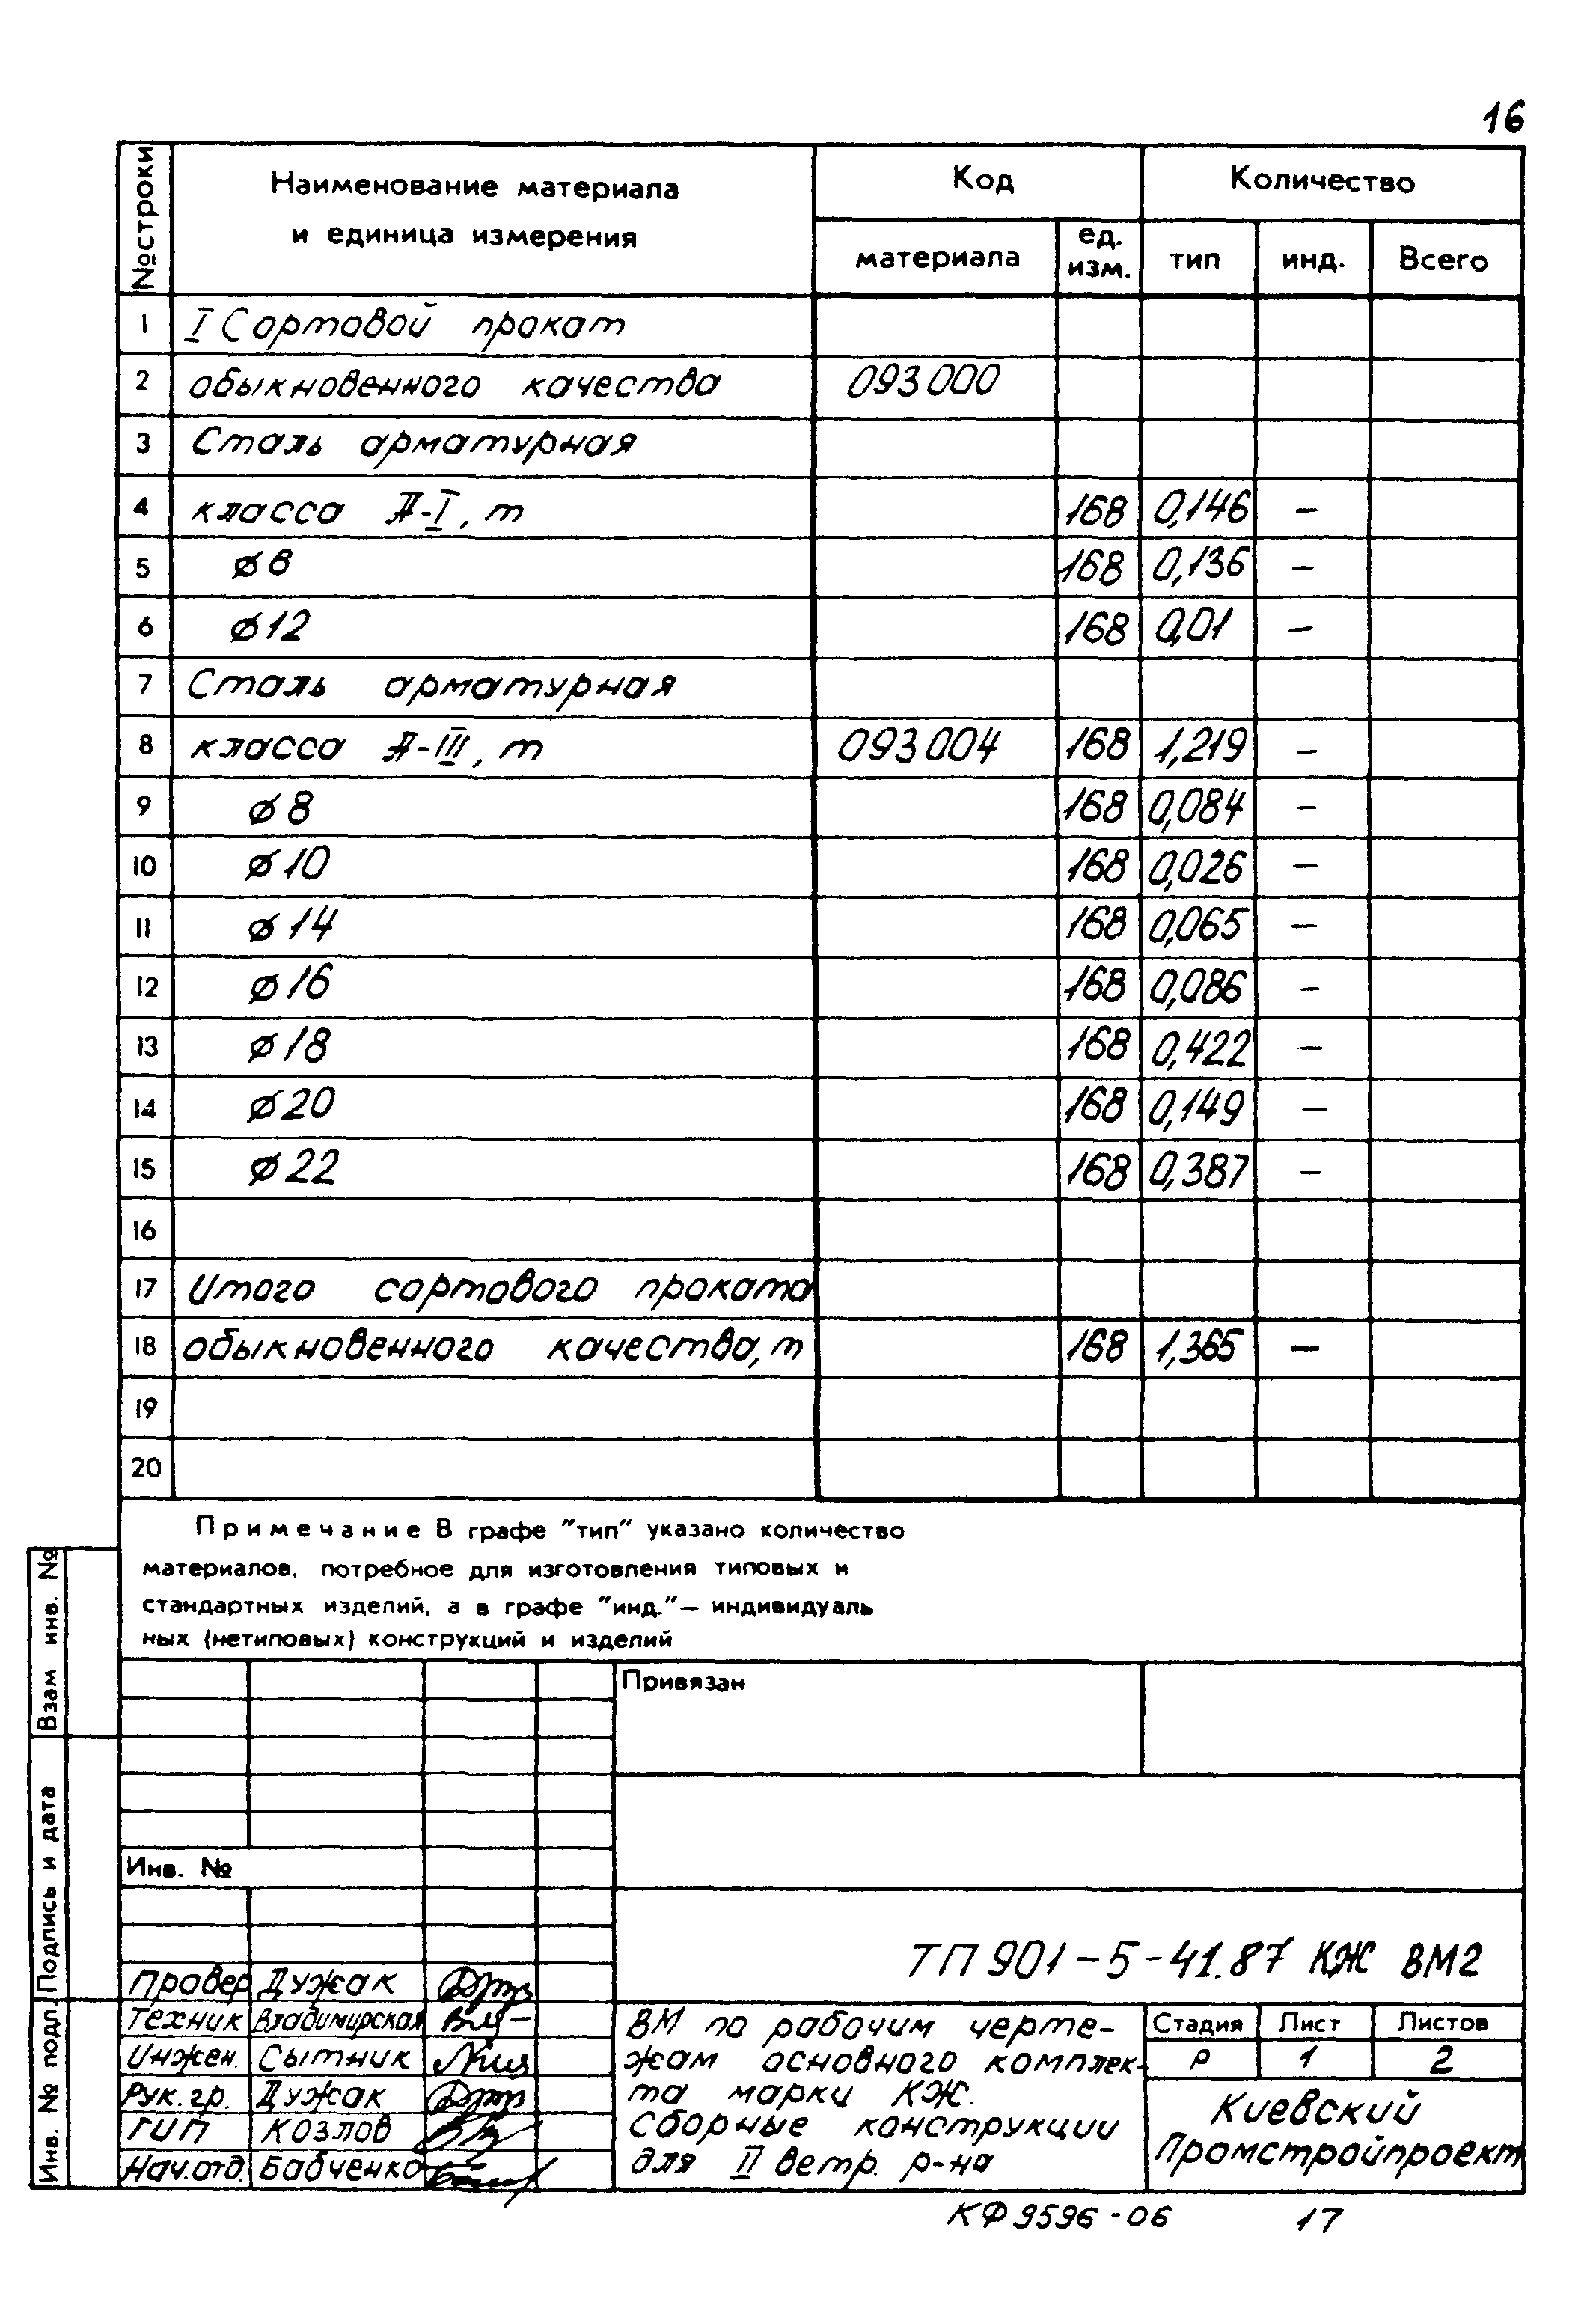 16
№ строки
Наименование материала
и единица измерения
Код
Количество
материала
ед.
изм.
тип
инд.
Всего
1 I Сортовой прокат
2 обыкновенного качества 093000
3 Сталь арматурная
4 класса А-I, т 168 0,146 –
5 ϕ6 168 0,136 –
6 ϕ12 168 0,01 –
7 Сталь арматурная
8 класса А-III, т 093004 168 1,219 –
9 ϕ8 168 0,084 –
10 ϕ10 168 0,026 –
11 ϕ14 168 0,065 –
12 ϕ16 168 0,086 –
13 ϕ18 168 0,422 –
14 ϕ20 168 0,149 –
15 ϕ22 168 0,387 –
16
17 Итого сортового проката
18 обыкновенного качества, т 168 1,365 –
19
20
Примечание В графе "тип" указано количество
материалов, потребное для изготовления типовых и
стандартных изделий, а в графе "инд."— индивидуаль
ных (нетиповых) конструкций и изделий
Взам инв. №
Подпись и дата
Инв. № подл.
Привязан
Инв. №
ТП 901-5-41.87 КЖ ВМ2
Провер Дужак
Техник Владимирская
Инжен. Сытник
Рук. гр. Дужак
ГИП Козлов
Нач.отд. Бабченко
ВМ по рабочим черте-
жам основного комплек-
та марки КЖ.
Сборные конструкции
для II ветр. р-на
Стадия Лист Листов
Р 1 2
Киевский
Промстройпроект
КФ 9596-06 17